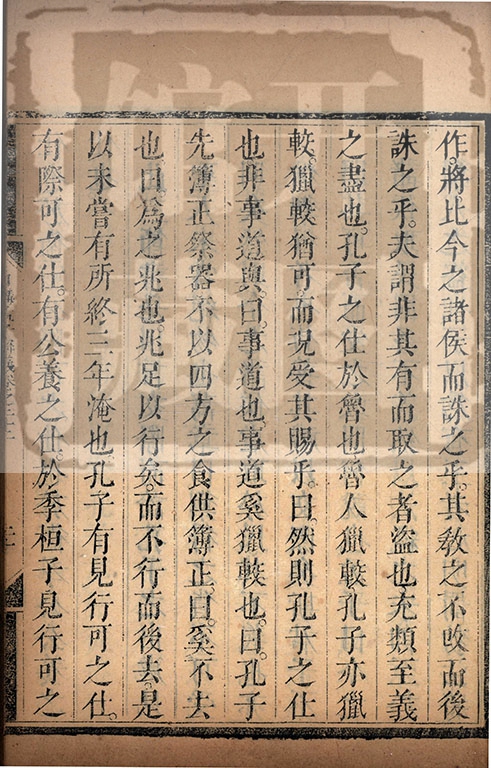 作將比今之諸侯而誅之乎其教之不改而後
誅之乎夫謂非其有而取之者盜也充類至義
之盡也孔子之仕於魯也魯人獵較孔子亦獵
較獵較猶可而況受其賜乎曰然則孔子之仕
也非事道與曰事道也事道奚獵較也曰孔子
先簿正祭器不以四方之食供簿正曰奚不去
也曰爲之兆也兆足以行矣而不行而後去是
以未嘗有所終三年淹也孔子有見行可之仕
有際可之仕有公養之仕於季桓子見行可之